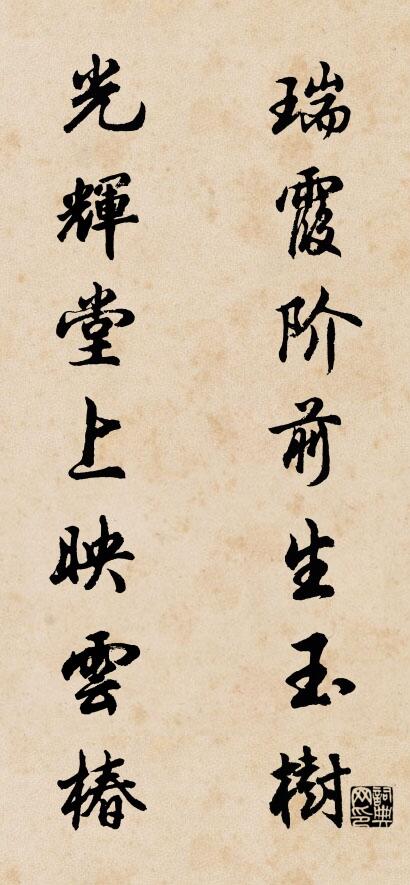 瑞霞阶前生玉樹
光輝堂上映雲椿
詞典網印